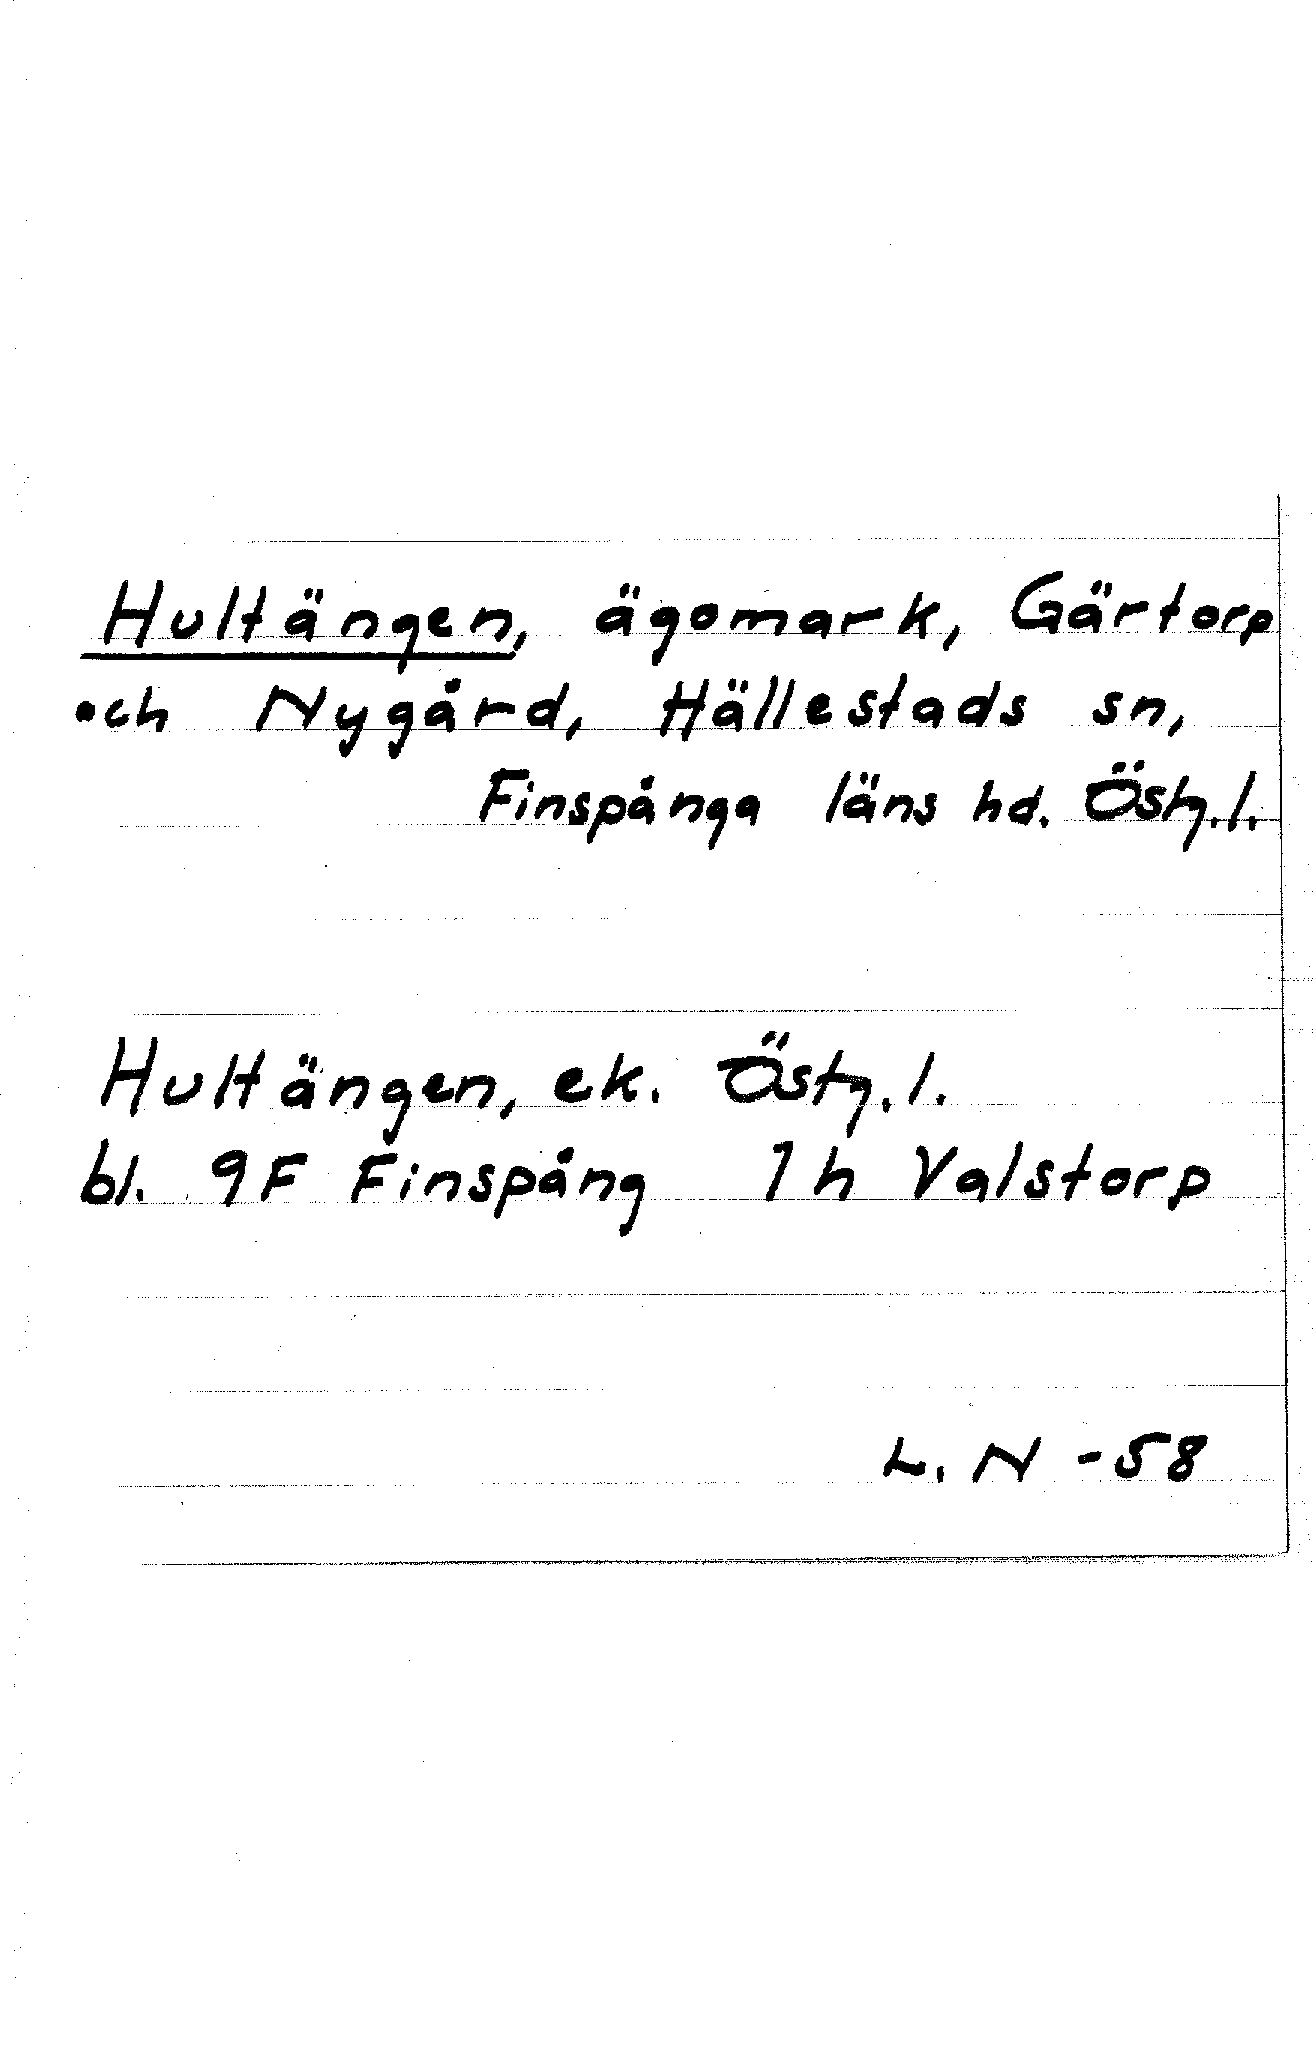 Hultängen, ägomark, Gärtorp
och Nygård, Hällestads sn,
Finspånga läns hd. Östg.l.
Hultängen, ek. Östg.l.
bl. 9F Finspång 1h Valstorp
L. N -58